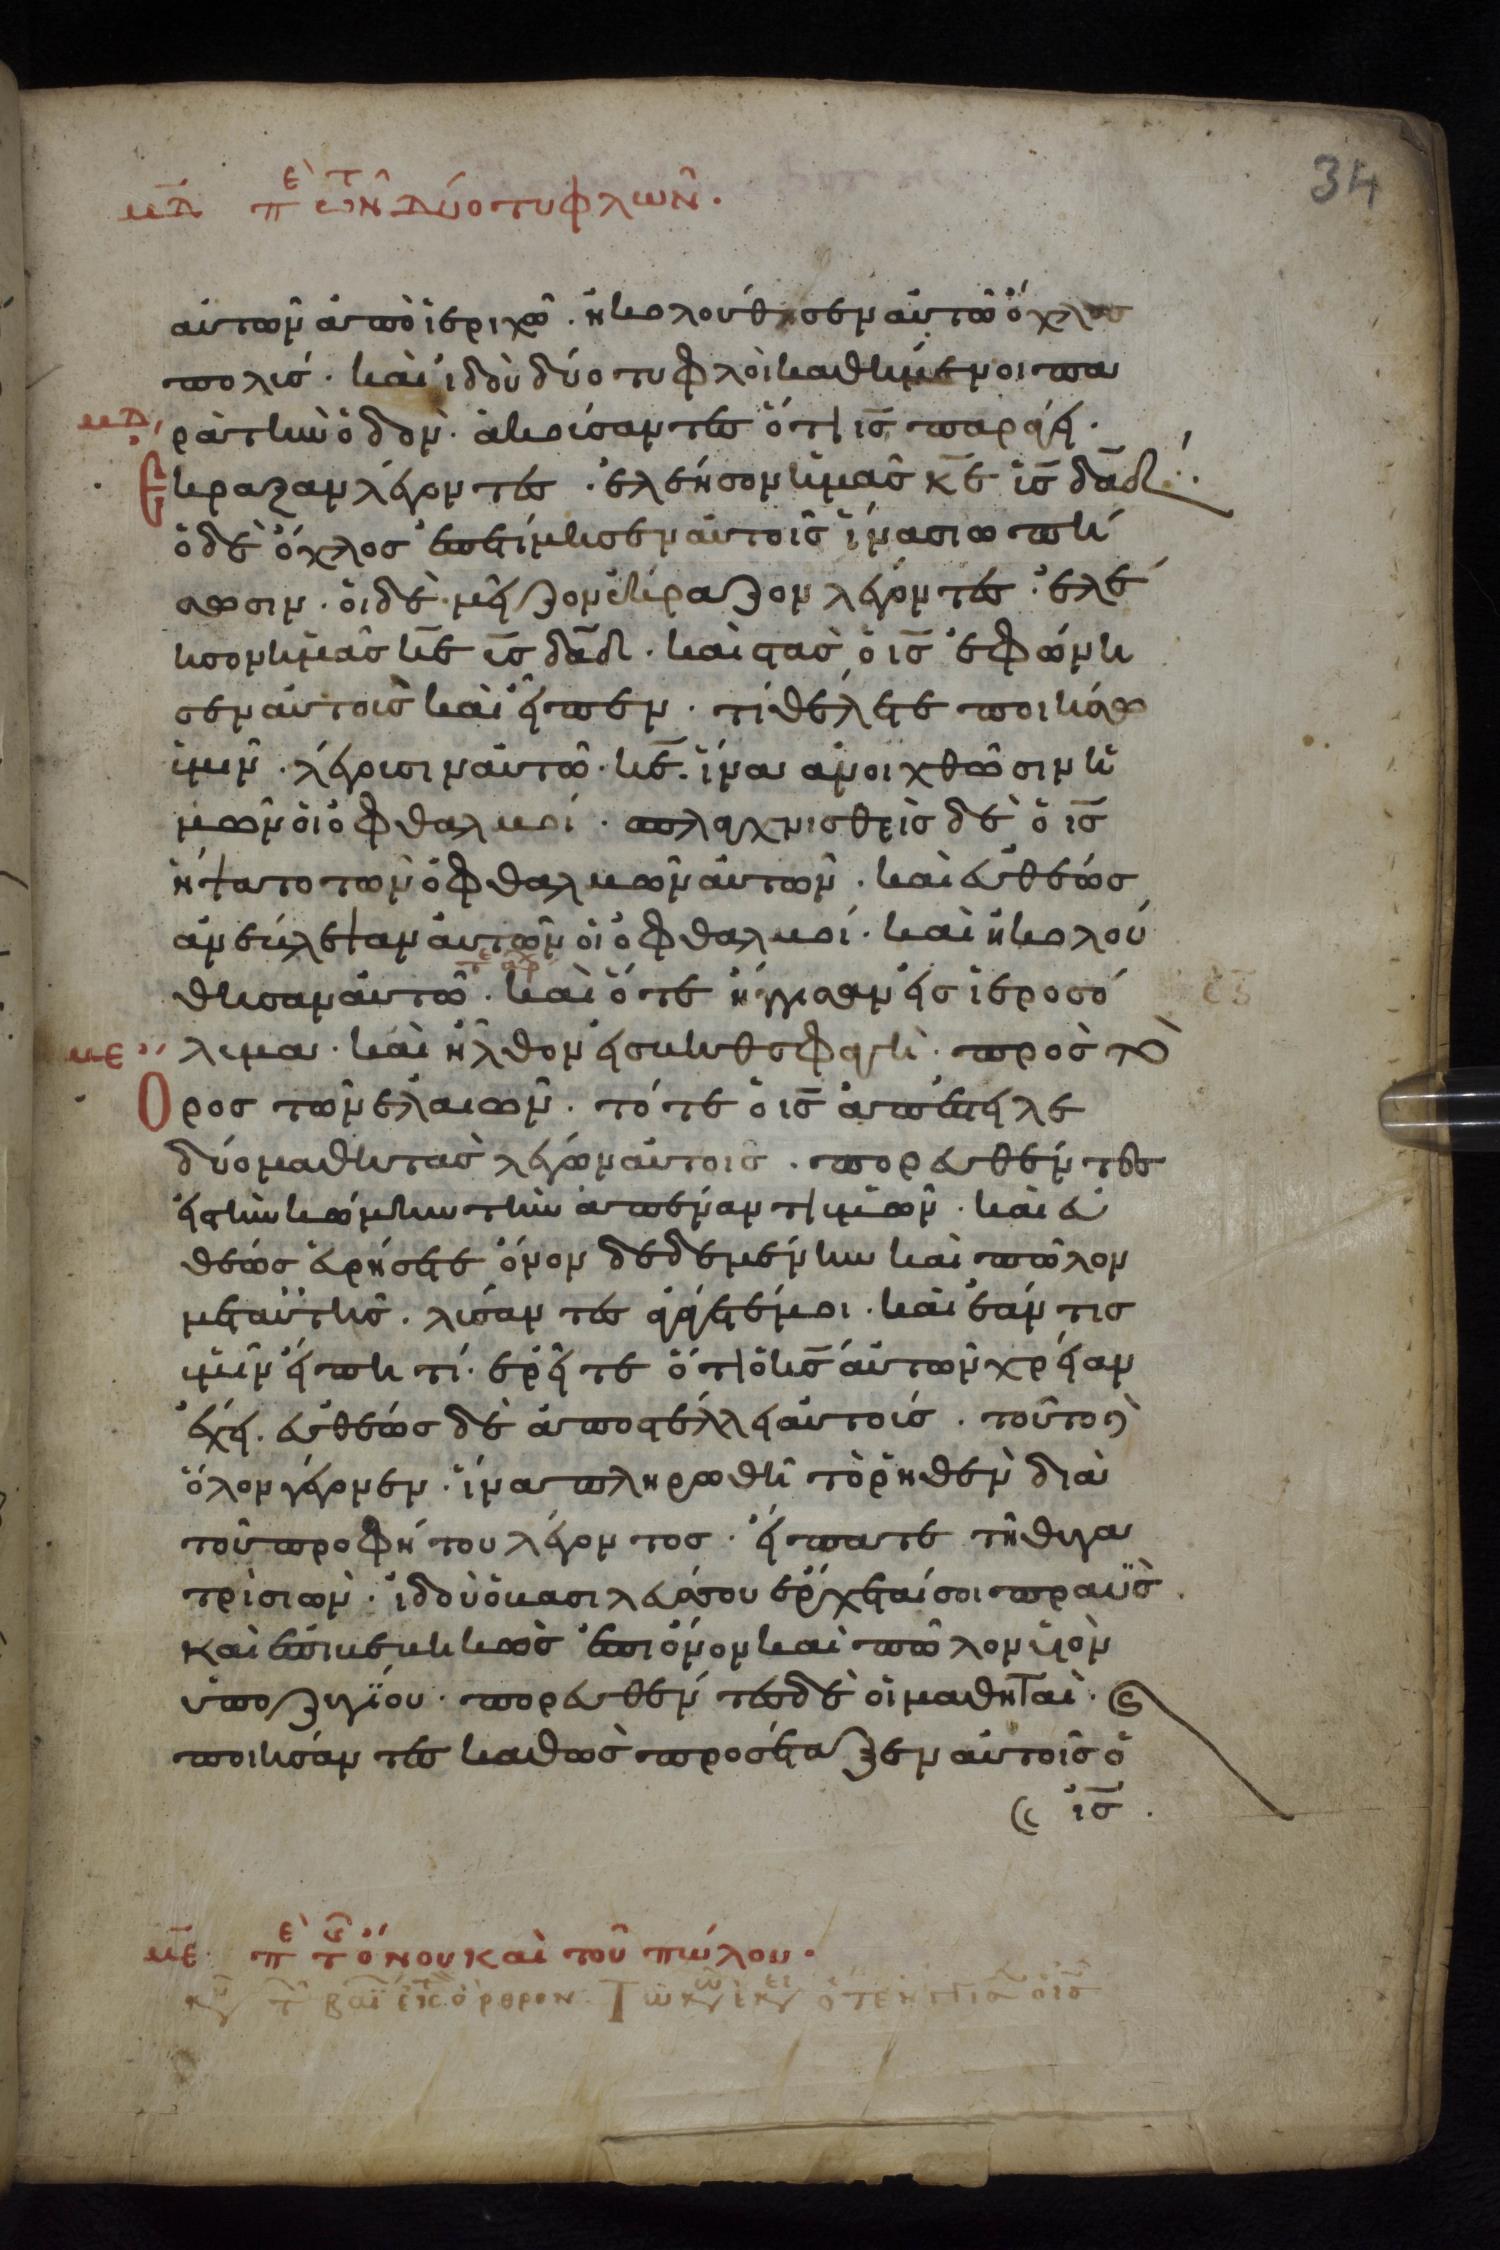 34
μδ̅ πε τῶν δύο τυφλῶν.
αυτῶν ἀπὸ ἱεριχῶ. ἠκολούθησεν αὐτῶ ὄχλος
πολισ. καὶ ἰδοὺ δύο τυφλοὶ καθήμενοι πα
ρὰ τὴν ὁδὸν. ἀκοίσαντες ὅτι ισ̅ παράγει.
μδ̅
Εκραξαν λέγοντες. ἐλεήσον ἡμᾶς κ̅ε ἰσ̅ δα̅δ.
ὁ δὲ ὄχλος ἐπετίμησεν αὐτοῖς ἵνα σιωπή
σωσιν. οἱ δὲ μεῖζον ἔκραζον λέγοντες. ἐλέ
ησον ἡμᾶς κ̅ε ισ̅ δα̅δ. καὶ στὰς ὁ ισ̅ ἐφώνη
σεν αὐτοῖς καὶ εἶπεν. τί θέλετε ποιήσω
ἱμῖν. λέγοισιν αὐτῶ. κ̅ε. ἵνα ἀνοιχθῶσιν ἡ
μῶν οἱ ὀφθαλμοί. σπλαχνισθεὶς δὲ ὁ ισ̅
ἥψατο τῶν ὀφθαλμῶν αὐτῶν. καὶ εὐθέως
ἀνέβλεψαν αὐτῶν οἱ ὀφθαλμοί. καὶ ἠκολού
θησαν αὐτῶ. καὶ ὅτε ἤγγισαν εἰς ἱεροσό
με λιμα. καὶ ἦλθον εἰς βηθσφαγὴ. πρὸς τὸ
Ορος τῶν ἐλαιῶν. τότε ὁ ισ̅ ἀπέστειλε
δύο μαθητὰς λέγων αὐτοῖς. πορευθέντες
εἰς τὴν κώμην τὴν ἀπέναντι ἱμῶν. καὶ εὐ
θέως εὑρήσετε ὄνον δεδεμένην καὶ πῶλον
μεταὐτῆς. λισαντες ἀγάγετέ μοι. καὶ ἐάν τις
ἱμῖν εἴπη τί. ἐρεῖτε ὅτι ὁ κ̅ς αὐτῶν χρείαν
ἔχει. εὐθέως δὲ ἀποστέλλει αὐτοίς. τοῦτο δὲ
ὅλον γέγονεν. ἵνα πληρωθῆ τὸ ῥηθὲν διὰ
τοῦ προφήτου λέγοντος. εἴπατε τῆ θιγα
τρὶ σιών. ἰδοὺ ὁ βασιλεύς σου ἔρχεταί σοι πραῢς
καὶ ἐπιβεβηκὼς ἐπι ὄνον καὶ πῶλον ὑιὸν
ὑποζιγίου. πορευθέντες δὲ οἱ μαθηταὶ. ϛ
ποιησάντες καθὼς προσέταξεν αὐτοῖς ὁ
ἰσ̅.
με̅ πε τ ὄνου καὶ τοῦ πώλου.